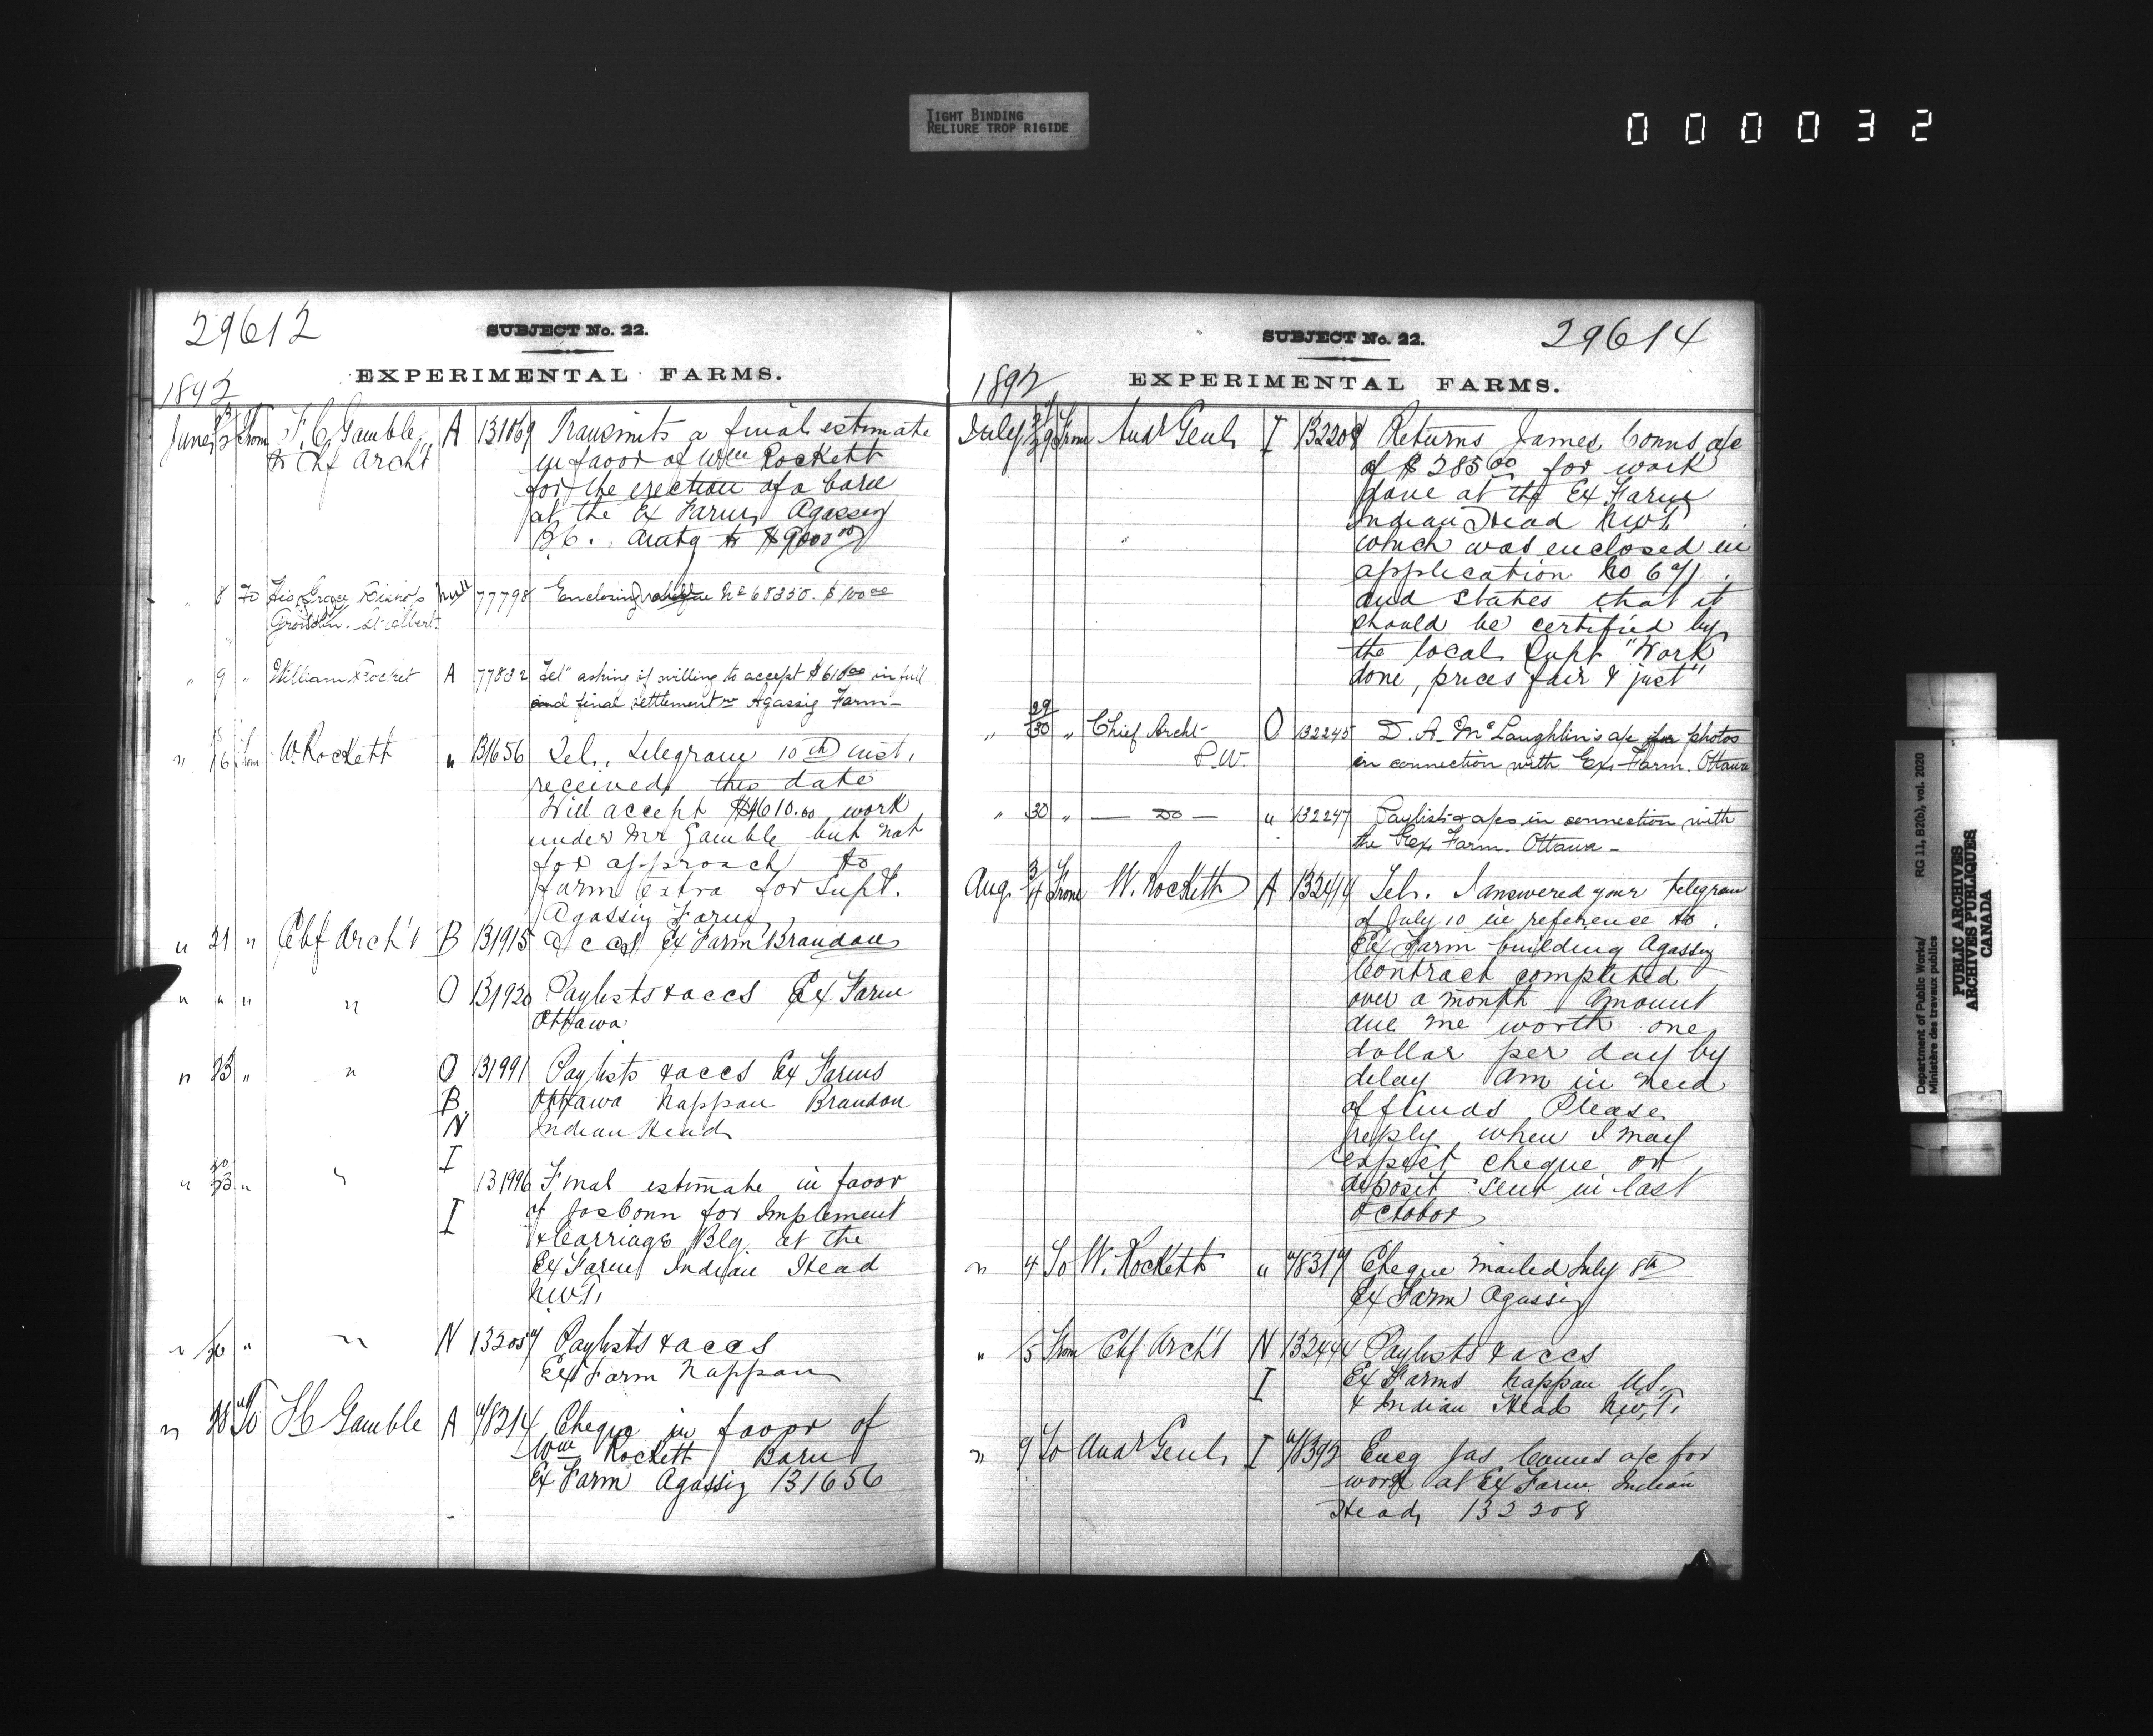 TIGHT BINDING
RELIURE TROP RIGIDE
000032
29612
SUBJECT No. 22.
EXPERIMENTAL FARMS.
1892
June From F. C. Gamble A 131069 Transmits a final estimate
to Chf Arch't in favor of Wm Rockett
for the erection of a barn
at the Ex Farm Agassiz
B.C.
" 8 To His Grace Null 77798 Enclosing cheque No 68350. $100 00
St Albert
" 9 " William Rocket A 77832 Tel" asking if willing to accept $610 00 in full
and final settlement re Agassiz Farm -
" 15/16 From W. Rockett " 131656 Tel. telegram 10th inst,
received this date
Will accept 610.00 work
under Mr Gamble but not
for approach to
farm extra for Supt.
Agassiz Farm
" 21 " Chf Arch't B 131915 accs Ex Farm Brandon
" " " " O 131920 Paylists & accs Ex Farm
Ottawa
" 23 " " O 131991 Paylists & accs Ex Farms
B Ottawa Nappan Brandon
N Indian Head
I
" " " 131996 Final estimate in favor
I of Jas Conn for Implement
& Carriage Blg at the
Ex Farm Indian Head
NWT,
" 26 " " N 132057 Paylists & accs
Ex Farm Nappan
" 28 To F C Gamble A 78214 Cheque in favor of
Wm Rockett Barn
Ex Farm Agassiz 131656
29614
SUBJECT No. 22.
EXPERIMENTAL FARMS.
1892
July 29 From Aud Genl I 132208 Returns James Conns a/c
of $285 00 for work
done at the Ex Farm
Indian Head NWT
which was enclosed in
application No 691
and states that it
should be certified by
the local Supt "Work
done, prices fair & just"
" 29/30 " Chief Archt- O 132245 D. A. McLaughlin's a/c for photos
P.W. in connection with Ex. Farm. Ottawa
" 30 " — Do — " 132247 Paylists & a/cs in connection with
the Ex. Farm. Ottawa -
Aug. 3/4 From W. Rockett A 132414 Tel. I answered your telegram
of July 10 in reference to
Ex Farm building Agassiz
Contract completed
over a month Amount
due me worth one
dollar per day by
delay Am in need
of funds Please
reply when I may
expect cheque or
deposit sent in last
October
" 4 To W. Rockett " 78317 Cheque mailed July 8th
Ex Farm Agassiz
" 5 From Chf Arch't N 132444 Paylists & accs
I Ex Farms Nappan N.S.
& Indian Head NWT,
" 9 To Aud Genl I 78392 Encg Jas Conns a/c for
work at Ex Farm Indian
Head 132208
Department of Public Works/
Ministère des travaux publics
RG 11, B2(b), vol. 2020
PUBLIC ARCHIVES
ARCHIVES PUBLIQUES
CANADA